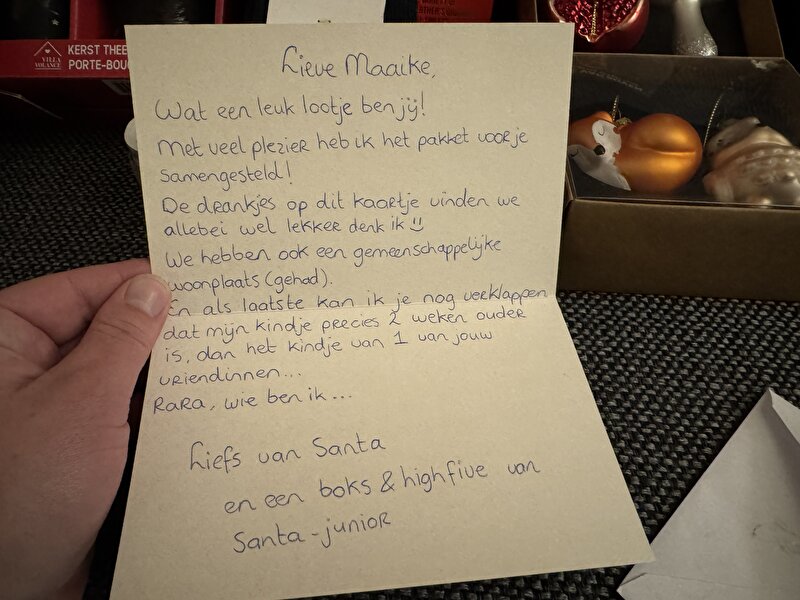 KERST THEE
PORTE-BOU
VILLA
VOLANCE
Lieve Maaike,
Wat een leuk lootje ben jij!
Met veel plezier heb ik het pakket voor je
samengesteld!
De drankjes op dit kaartje vinden we
allebei wel lekker denk ik
We hebben ook een gemeenschappelijke
woonplaats (gehad).
En als laatste kan ik je nog verklappen
dat mijn kindje precies 2 weken ouder
is, dan het kindje van 1 van jouw
vriendinnen...
RaRa, wie ben ik...
Liefs van Santa
en een boks & highfive van
Santa-junior